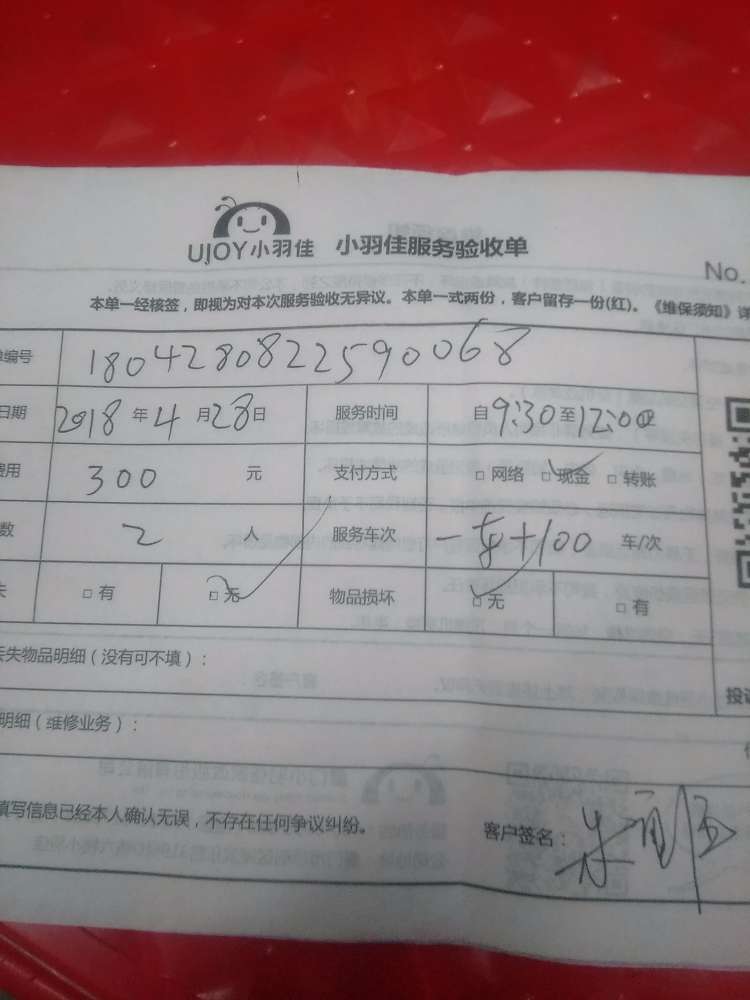 UJOY小羽佳 小羽佳服务验收单
No.
本单一经核签，即视为对本次服务验收无异议。本单一式两份，客户留存一份(红)。《维保须知》详
编号 1804280822590068
日期 2018 年 4 月 28 日 服务时间 自 9:30 至 12:00
费用 300 元 支付方式 □ 网络 □ 现金 □ 转账
数 2 人 服务车次 一车+100 车/次
失 □ 有 □ 无 物品损坏 □ 无 □ 有
丢失物品明细（没有可不填）：
投诉
明细（维修业务）：
填写信息已经本人确认无误，不存在任何争议纠纷。
客户签名：